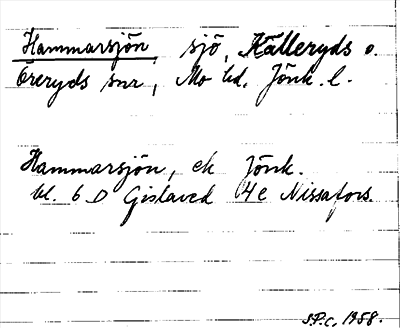 Hammarsjön, sjö, Källeryds o.
Öreryds snr, Mo hd. Jönk. l.
Hammarsjön, ek Jönk.
bl. 6 D Gislaved 4e Nissafors.
S.P.C. 1958.